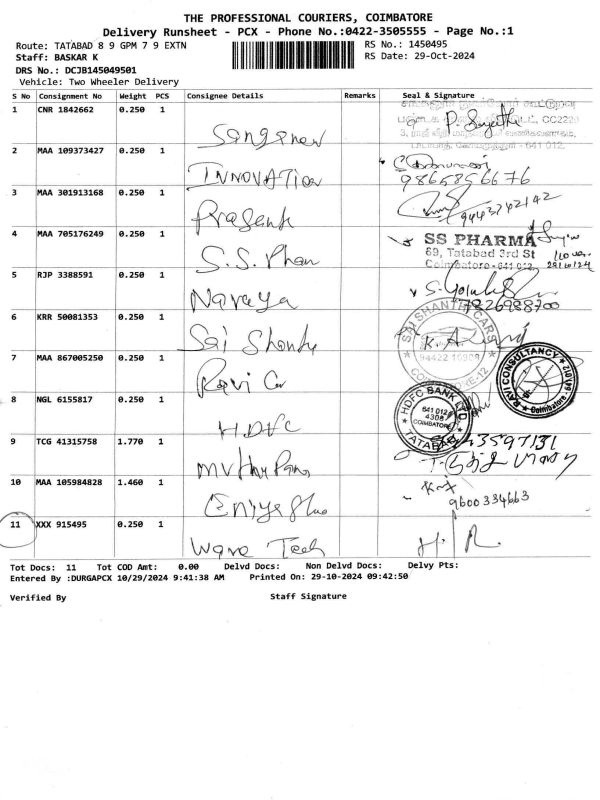 THE PROFESSIONAL COURIERS, COIMBATORE
Delivery Runsheet - PCX - Phone No.:0422-3505555 - Page No.:1
Route: TATABAD 8 9 GPM 7 9 EXTN
RS No.: 1450495
Staff: BASKAR K
RS Date: 29-Oct-2024
DRS No.: DCJB145049501
Vehicle: Two Wheeler Delivery
S No Consignment No Weight PCS Consignee Details Remarks Seal & Signature
1 CNR 1842662 0.250 1
2 MAA 109373427 0.250 1 INNOVATION
9865856676
3 MAA 301913168 0.250 1 Prasanth
9443742142
4 MAA 705176249 0.250 1 S.S. Pham
SS PHARMA
69, Tatabad 3rd St
Coimbatore - 641 012
5 RJP 3388591 0.250 1 Naraya
7826988700
6 KRR 50081353 0.250 1 Sai Shanthi
SAI SHANTHI CARS
94422 10909
COIMBATORE-12
7 MAA 867005250 0.250 1 Ravi Co
RAVI CONSULTANCY
Coimbatore
8 NGL 6155817 0.250 1 HDFC
HDFC BANK LTD
641 012
4308
COIMBATORE
TATABAD
9 TCG 41315758 1.770 1
10 MAA 105984828 1.460 1
9600334663
11 XXX 915495 0.250 1 Wave Tech
Tot Docs: 11 Tot COD Amt: 0.00 Delvd Docs: Non Delvd Docs: Delvy Pts:
Entered By :DURGAPCX 10/29/2024 9:41:38 AM Printed On: 29-10-2024 09:42:50
Verified By Staff Signature